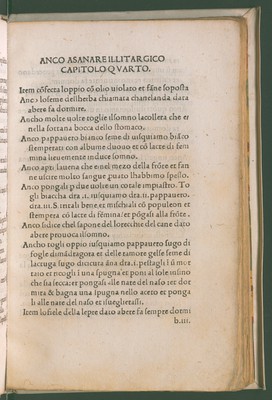 ANCO ASANARE ILLITARGICO
CAPITOLO QVARTO.
Item cõfecta loppio cõ olio uiolato et fãne soposta
Anco loseme dellherba chiamata chanelanda data
abere fa dormire.
Ancho molte uolte toglie illomno lacollera che e
nella sottana bocca dello stomaco.
Anco pappauero bianco seme di iusquiamo bisco
stemperati con albume duouo et cõ lacte di fem
mina lieuemente induce somno.
Anco apri lauena che e nel mezo della frõte et fan
ne uscire molto sangue puato lhabbimo spesso.
Anco pongasi p due uolte un cotale impiastro. To
gli biaccha dra .ii. iusquiamo dra.ii. pappauero.
dra.iii. S. tritali bene, et mischiali cõ populeon et
stempera cõ lacte di fẽmina: et põgasi alla frõte .
Anco sidice chel sapone del lorecchie del cane dato
abere prouoca ilsomno.
Ancho togli oppio iusquiamo pappauero sugo di
foglie dimãdragora et delle tamore gelse seme di
lactuga sugo dicicuta ãna dra.i. pestagli i ũ mor
taio et recogli i una spugna et poni al sole insino
che sia secca: et pongasi alle nare del naso ꝛet dor
mira & bagna una spugna nello aceto et ponga
li alle nare del naso et isueglierassi.
Item losiele della lepre dato abere fa sempre dormi
b.iii.